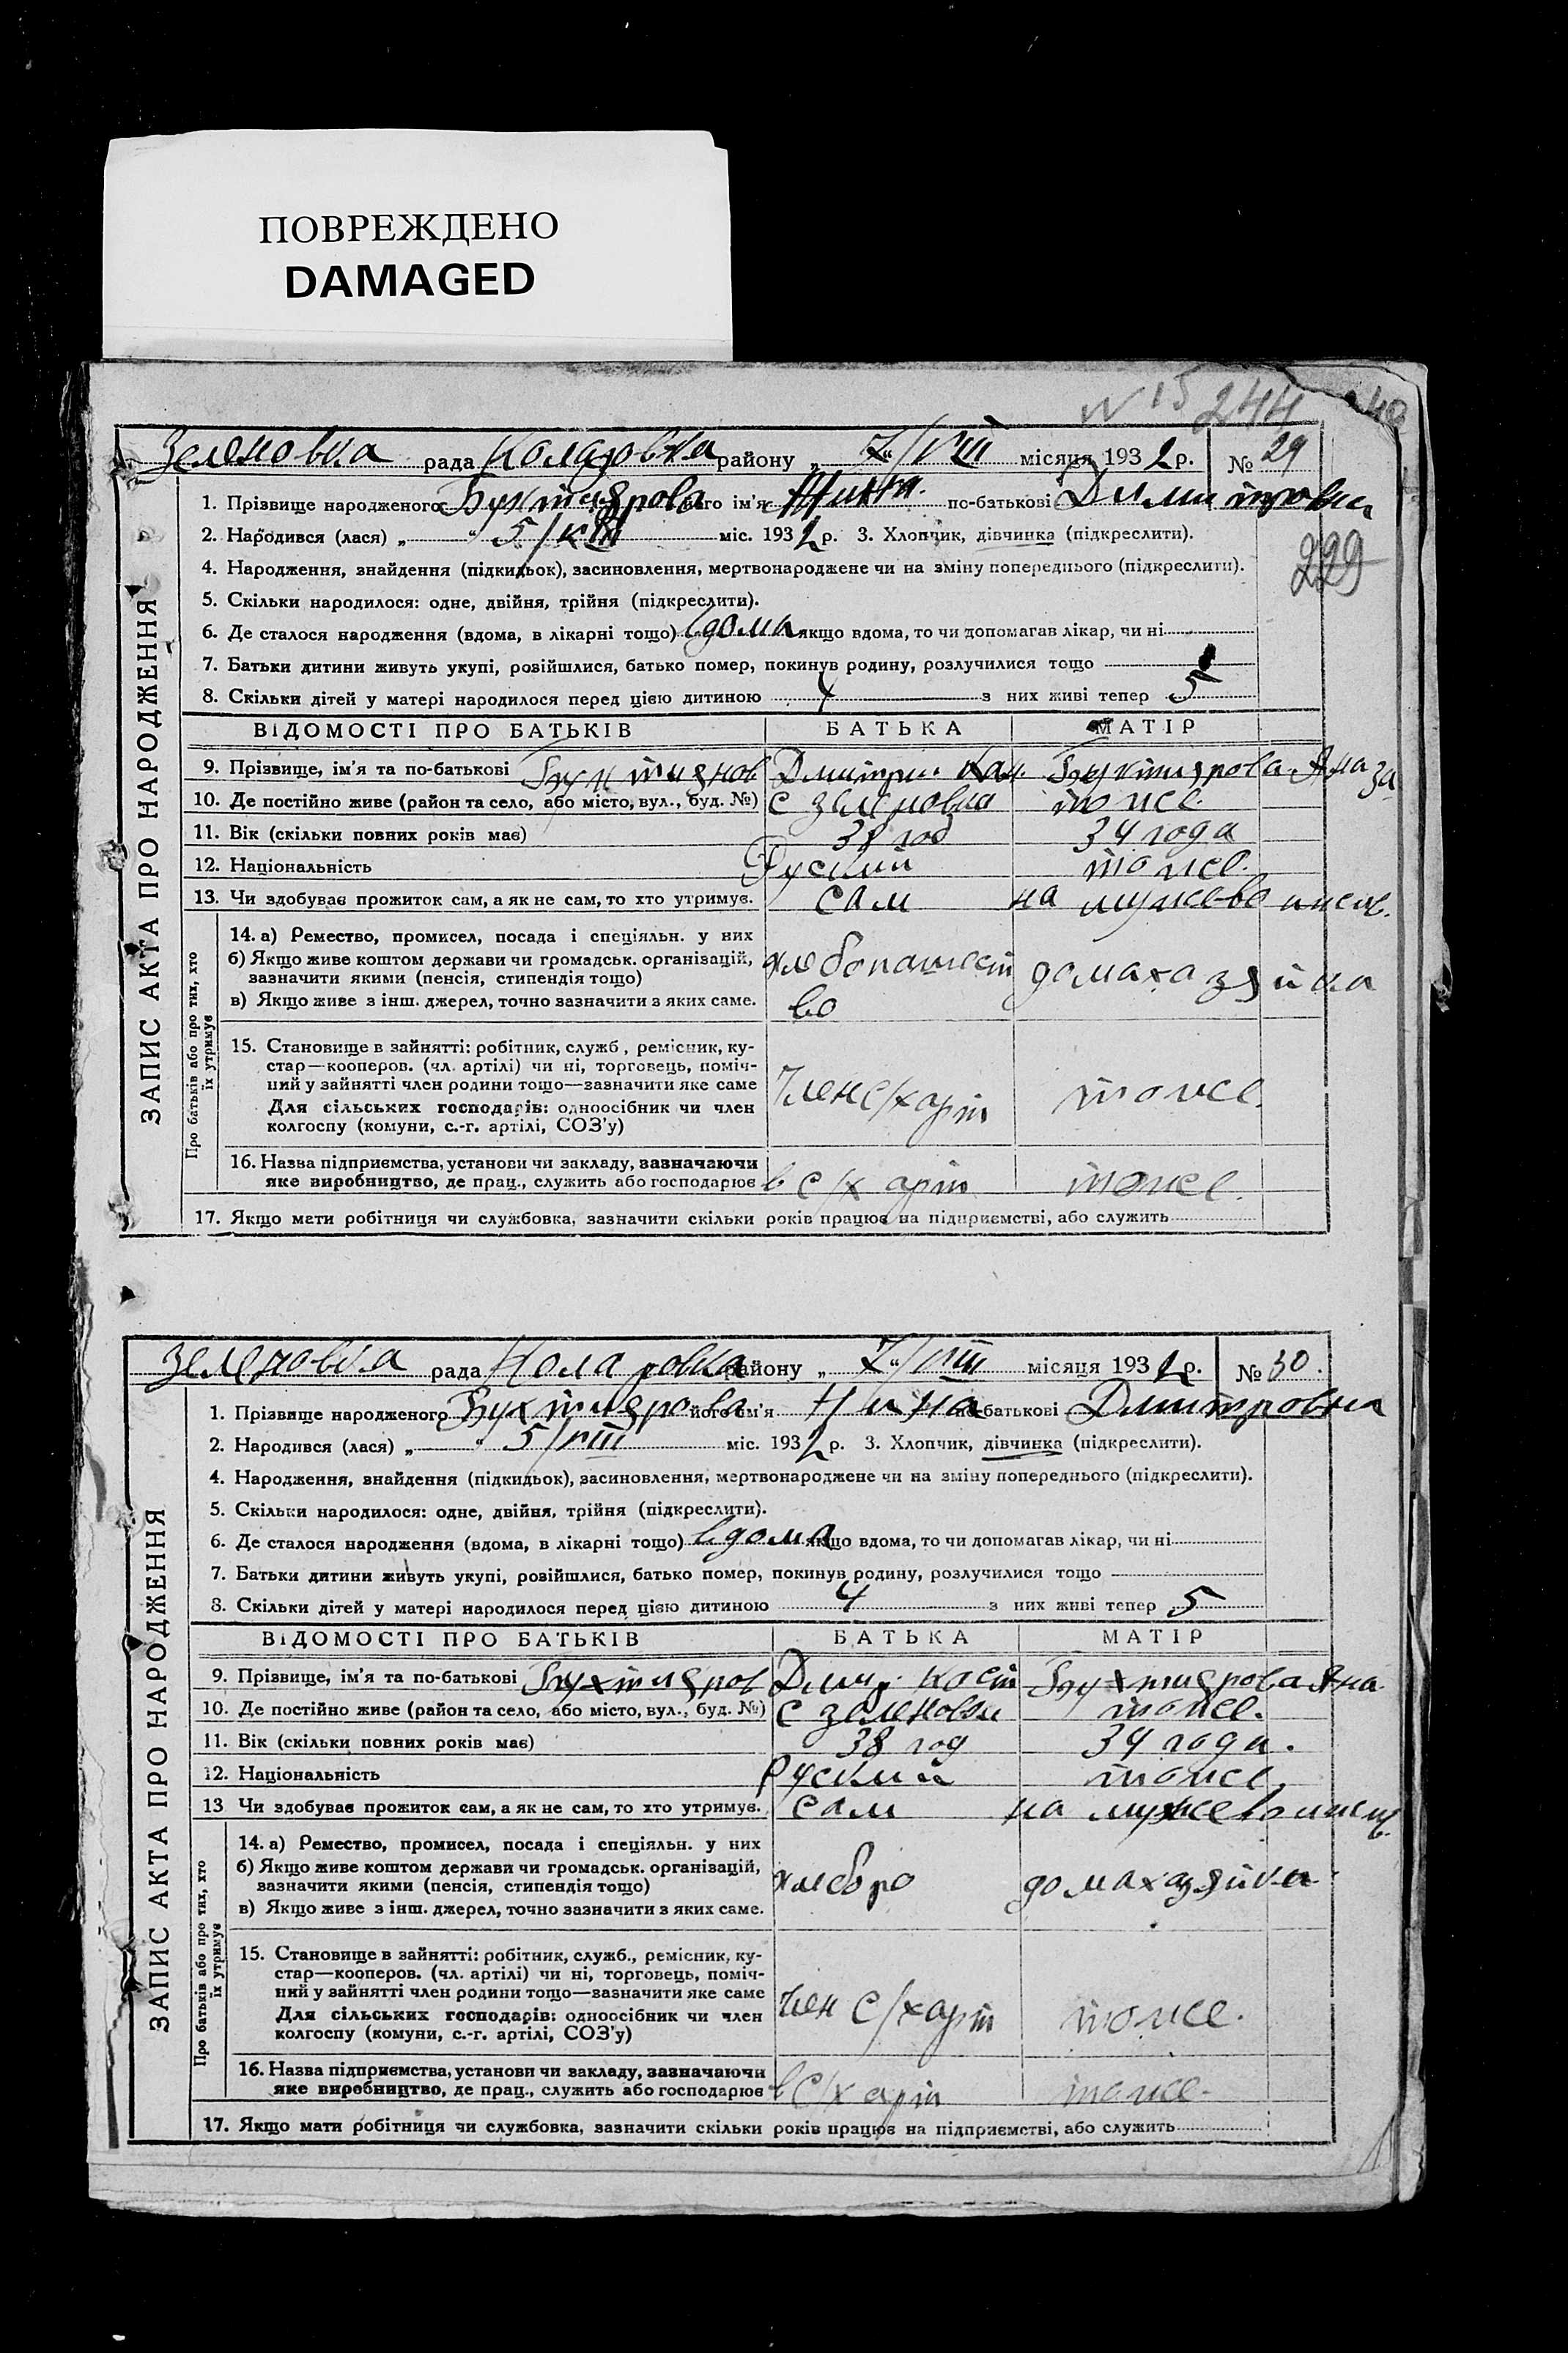 ПОВРЕЖДЕНО
DAMAGED
N 15 244
Зеленовка рада Коларовка району „7“/VIII місяця 1932 р. № 29
229
ЗАПИС АКТА ПРО НАРОДЖЕННЯ
1. Прізвище народженого Бухтиярова його ім'я по-батькові Димитровна
2. Народився (лася) „ “ 5/VIII міс. 1932 р. 3. Хлопчик, дівчинка (підкреслити).
4. Народження, знайдення (підкидьок), засиновлення, мертвонароджене чи на зміну попереднього (підкреслити).
5. Скільки народилося: одне, двійня, трійня (підкреслити).
6. Де сталося народження (вдома, в лікарні тощо) вдома якщо вдома, то чи допомагав лікар, чи ні
7. Батьки дитини живуть укупі, розійшлися, батько помер, покинув родину, розлучилися тощо
8. Скільки дітей у матері народилося перед цією дитиною 4 з них живі тепер 5
ВІДОМОСТІ ПРО БАТЬКІВ БАТЬКА МАТІР
9. Прізвище, ім'я та по-батькові Бухтияров Дмитрии Бухтиярова Ана за
10. Де постійно живе (район та село, або місто, вул., буд. №) с зеленовка тоже.
11. Вік (скільки повних років має) 38 год 34 года
12. Національність Руский тоже.
13. Чи здобуває прожиток сам, а як не сам, то хто утримує. сам на мужево
Про батьків або про тих, хто їх утримує
14. а) Ремество, промисел, посада і спеціяльн. у них
б) Якщо живе коштом держави чи громадськ. організацій, зазначити якими (пенсія, стипендія тощо)
в) Якщо живе з інш. джерел, точно зазначити з яких саме.
хлебопашест
во
домахазяйка
15. Становище в зайнятті: робітник, служб, ремісник, ку-
стар—кооперов. (чл. артілі) чи ні, торговець, поміч-
ний у зайнятті член родини тощо—зазначити яке саме
Для сільських господарів: одноосібник чи член
колгоспу (комуни, с.-г. артілі, СОЗ'у)
Член с/х арт тоже.
16. Назва підприємства, установи чи закладу, зазначаючи
яке виробництво, де прац., служить або господарює в с/х арт тоже.
17. Якщо мати робітниця чи службовка, зазначити скільки років працює на підприємстві, або служить
Зеленовка рада Коларовка району „7“/VIII місяця 1932 р. № 30.
ЗАПИС АКТА ПРО НАРОДЖЕННЯ
1. Прізвище народженого Бухтиярова його ім'я Нина по-батькові Дмитровна
2. Народився (лася) „ “ 5/VIII міс. 1932 р. 3. Хлопчик, дівчинка (підкреслити).
4. Народження, знайдення (підкидьок), засиновлення, мертвонароджене чи на зміну попереднього (підкреслити).
5. Скільки народилося: одне, двійня, трійня (підкреслити).
6. Де сталося народження (вдома, в лікарні тощо) вдома якщо вдома, то чи допомагав лікар, чи ні
7. Батьки дитини живуть укупі, розійшлися, батько помер, покинув родину, розлучилися тощо
8. Скільки дітей у матері народилося перед цією дитиною 4 з них живі тепер 5
ВІДОМОСТІ ПРО БАТЬКІВ БАТЬКА МАТІР
9. Прізвище, ім'я та по-батькові Бухтияров Дмитр. кост Бухтиярова Ана
10. Де постійно живе (район та село, або місто, вул., буд. №) с зеленовки тоже.
11. Вік (скільки повних років має) 38 год 34 года.
12. Національність Руский тоже
13 Чи здобуває прожиток сам, а як не сам, то хто утримує. сам на мужево
Про батьків або про тих, хто їх утримує
14. а) Ремество, промисел, посада і спеціяльн. у них
б) Якщо живе коштом держави чи громадськ. організацій, зазначити якими (пенсія, стипендія тощо)
в) Якщо живе з інш. джерел, точно зазначити з яких саме.
хлеборо домахазяйка
15. Становище в зайнятті: робітник, служб., ремісник, ку-
стар—кооперов. (чл. артілі) чи ні, торговець, поміч-
ний у зайнятті член родини тощо—зазначити яке саме
Для сільських господарів: одноосібник чи член
колгоспу (комуни, с.-г. артілі, СОЗ'у)
Член с/х арт тоже.
16. Назва підприємства, установи чи закладу, зазначаючи
яке виробництво, де прац., служить або господарює в с/х арт тоже
17. Якщо мати робітниця чи службовка, зазначити скільки років працює на підприємстві, або служить